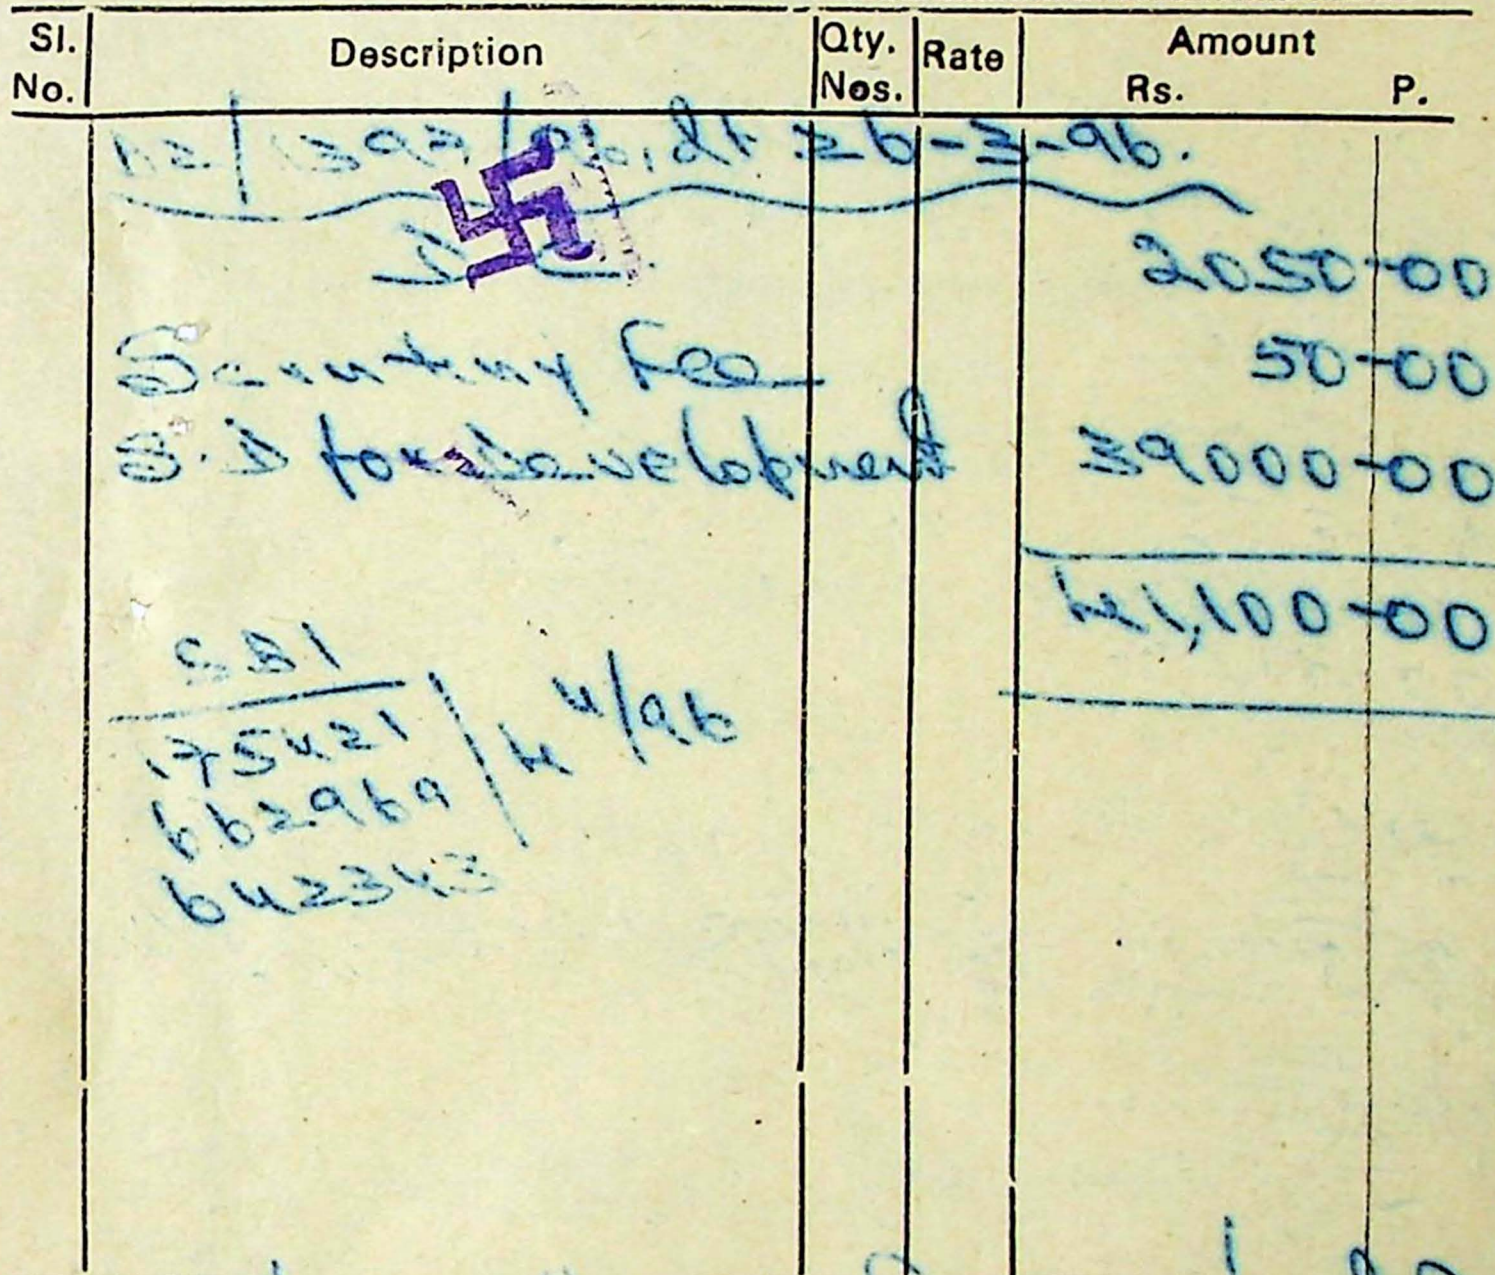 Sl. No. Description Qty. Nos. Rate Amount Rs. P.
dt 26-3-96.
2050-00
Scrutiny Fee 50-00
S.D for Development 39000-00
41,100-00
SBI
175421
662969 4/96
642343